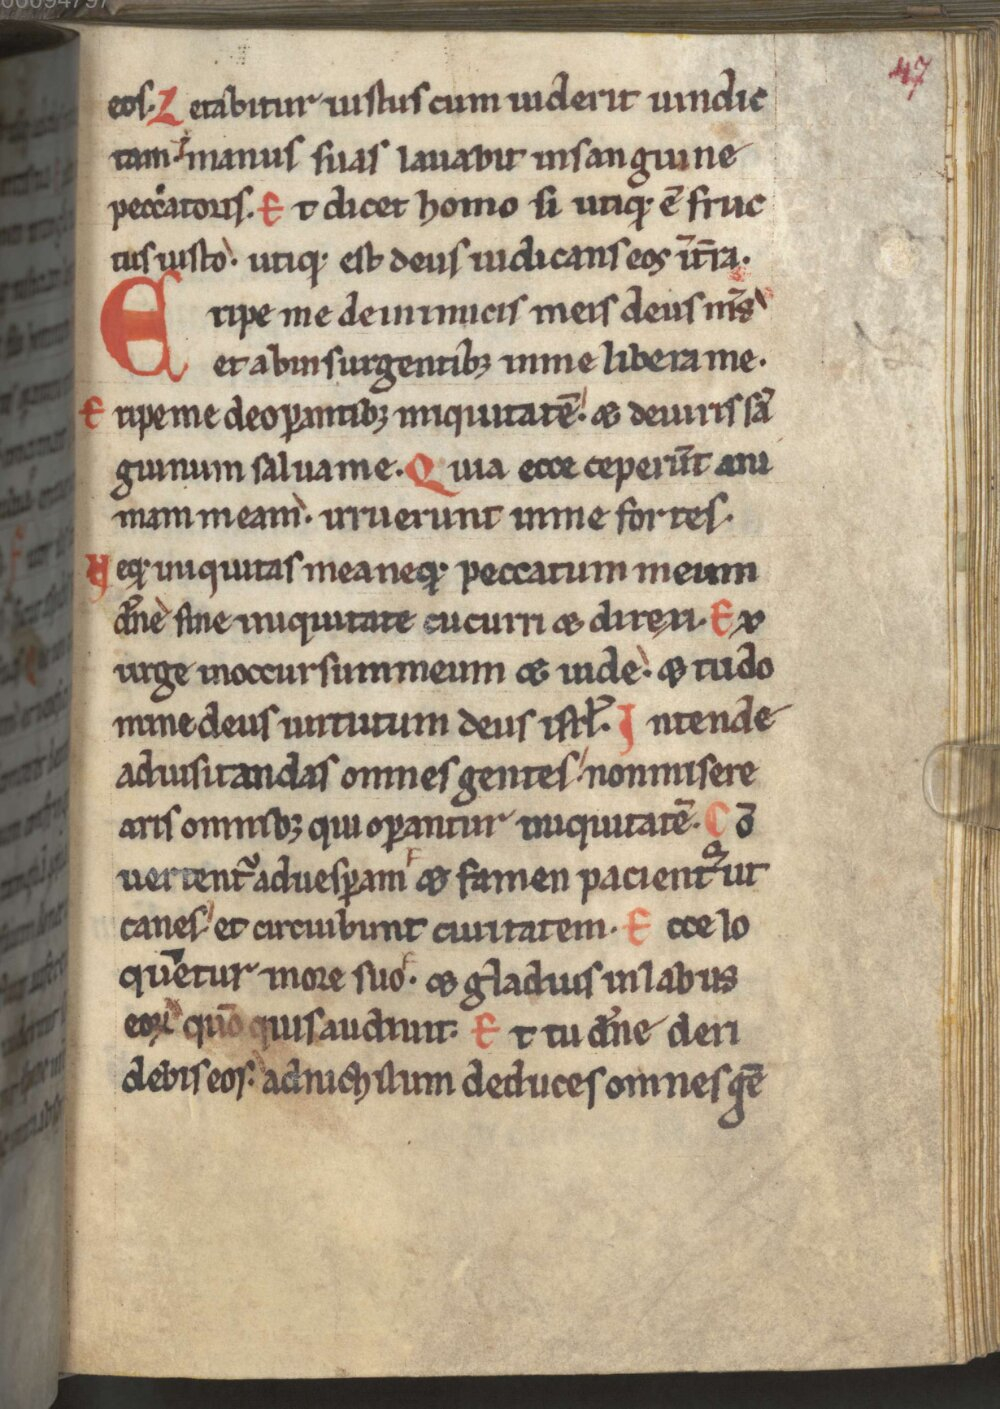 47
eos. Letabitur iustus cum uiderit uindic
tam. manus suas lauabit insanguine
peccatoris. Et dicet homo si utiq; ē fruc
tus iusto. utiq; est deus iudicans eos īt̄ra.
Eripe me deinimicis meis deus m̄s
et abinsurgentib; inme libera me.
Eripe me deoꝑantib; iniquitatē. & deuiris sā
guinum salua me. Quia ecce ceperūt ani
mam meam. irruerunt inme fortes.
Neq; iniquitas mea neq; peccatum meum
dn̄e sine iniquitate cucurri & direxi. Ex
urge inoccursum meum & uide. & tu do
mine deus uirtutum deus isrl̄. Intende
aduisitandas omnes gentes. non misere
aris omnib; qui oꝑantur iniquitatē. Cō
uertent᷑ aduesꝑam & famem pacient᷑ ut
canes et circuibunt ciuitatem. Ecce lo
quētur in ore suo. & gladius inlabiis
eoꝝ quō quis audiuit. Et tu dn̄e deri
debis eos. adnichilum deduces omnes gē